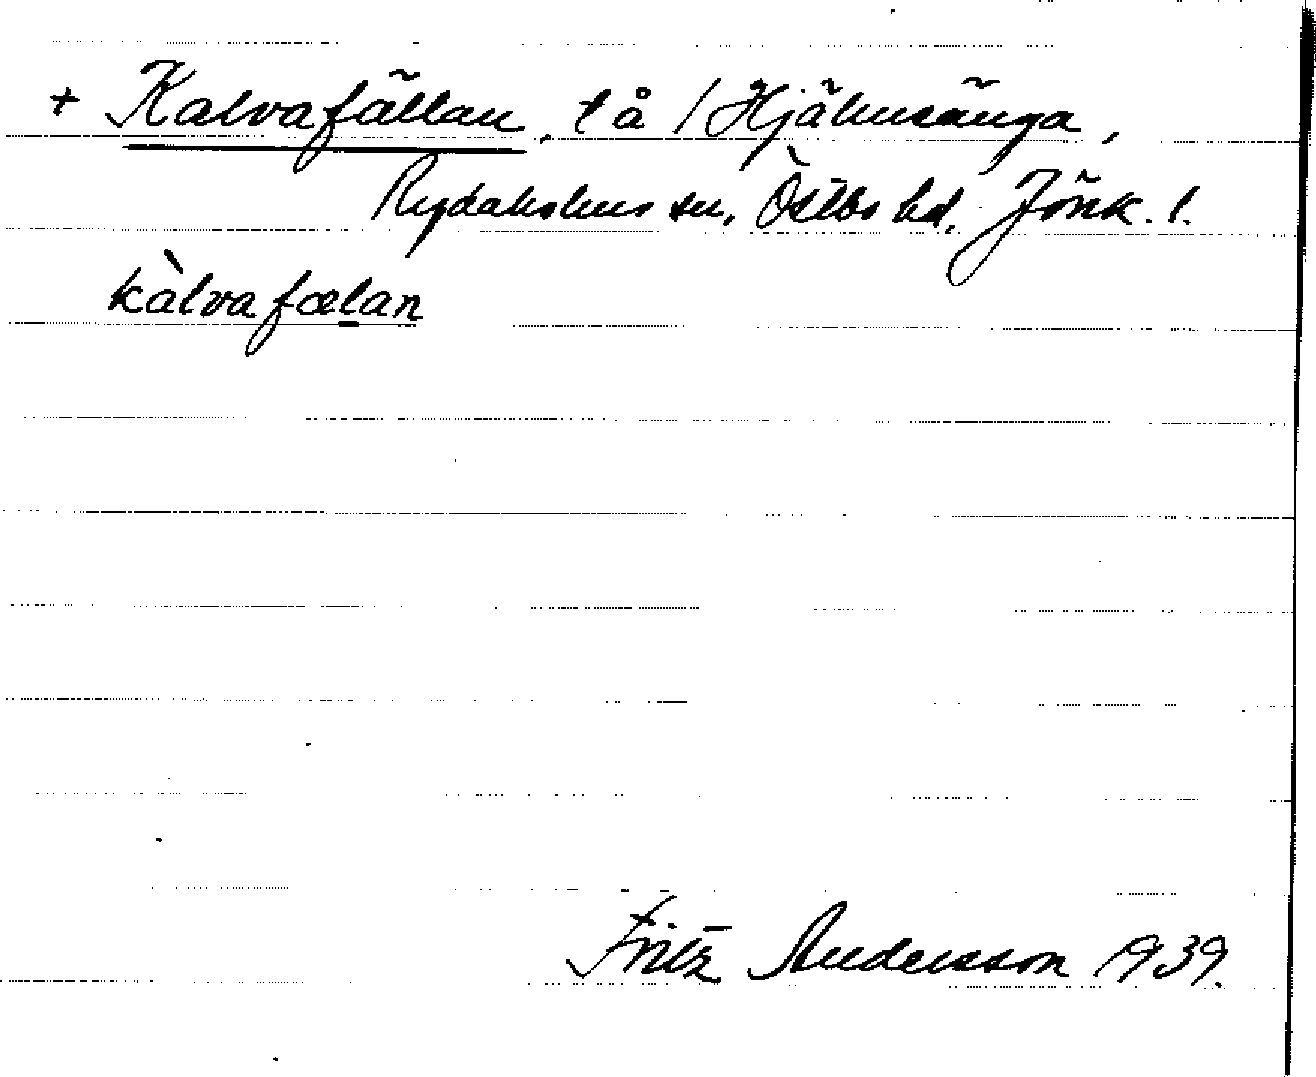 + Kalvafällan, t å / Hjälmsänga,
Rydaholms sn, Östbo hd, Jönk. l.
kàlvafælan
Fritz Andersson 1939.